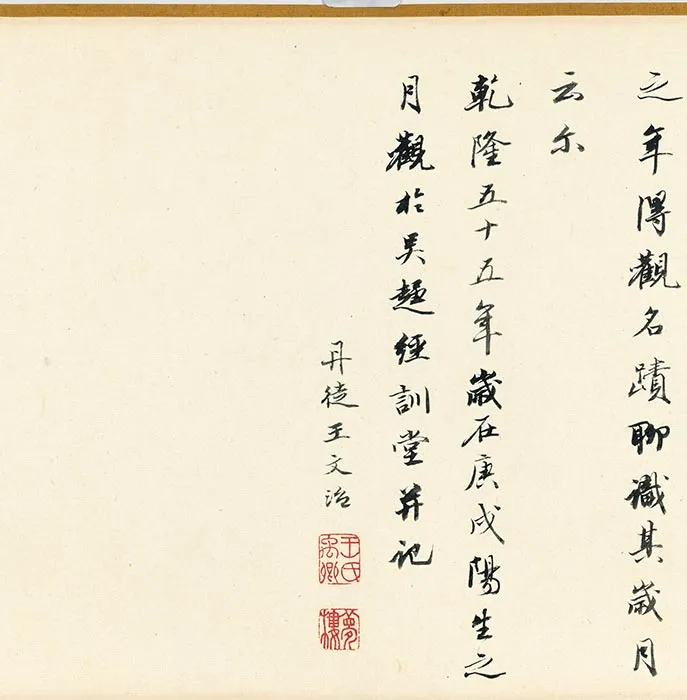 之年得觀名蹟聊識其歲月
云尔
乾隆五十五年歲在庚戌陽生之
月觀於吳趨經訓堂并記
丹徒王文治
王氏禹卿
夢樓